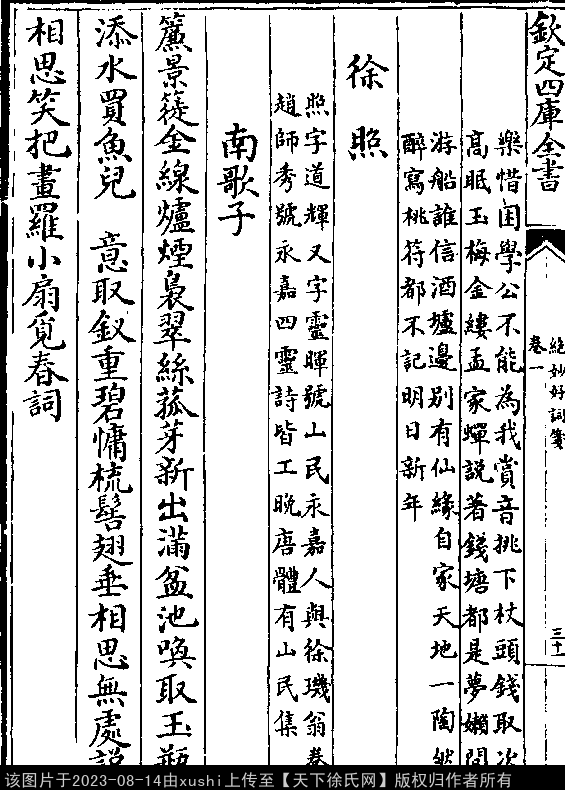 欽定四庫全書
絶妙好詞箋
卷一
三十
樂惜困學公不能為我賞音挑下杖頭錢取次
高眠玉梅金縷孟家蟬説著錢塘都是夢嬾問
游船誰信酒壚邊别有仙緣自家天地一陶然
醉寫桃符都不記明日新年
徐照
照字道輝又字靈暉號山民永嘉人與徐璣翁卷
趙師秀號永嘉四靈詩皆工晚唐體有山民集
南歌子
簾景簁金線爐煙裊翠絲菰芽新出滿盆池喚取玉瓶
添水買魚兒 意取釵重碧慵梳髻翅垂相思無處説
相思笑把畫羅小扇覓春詞
该图片于2023-08-14由xushi上传至【天下徐氏网】版权归作者所有